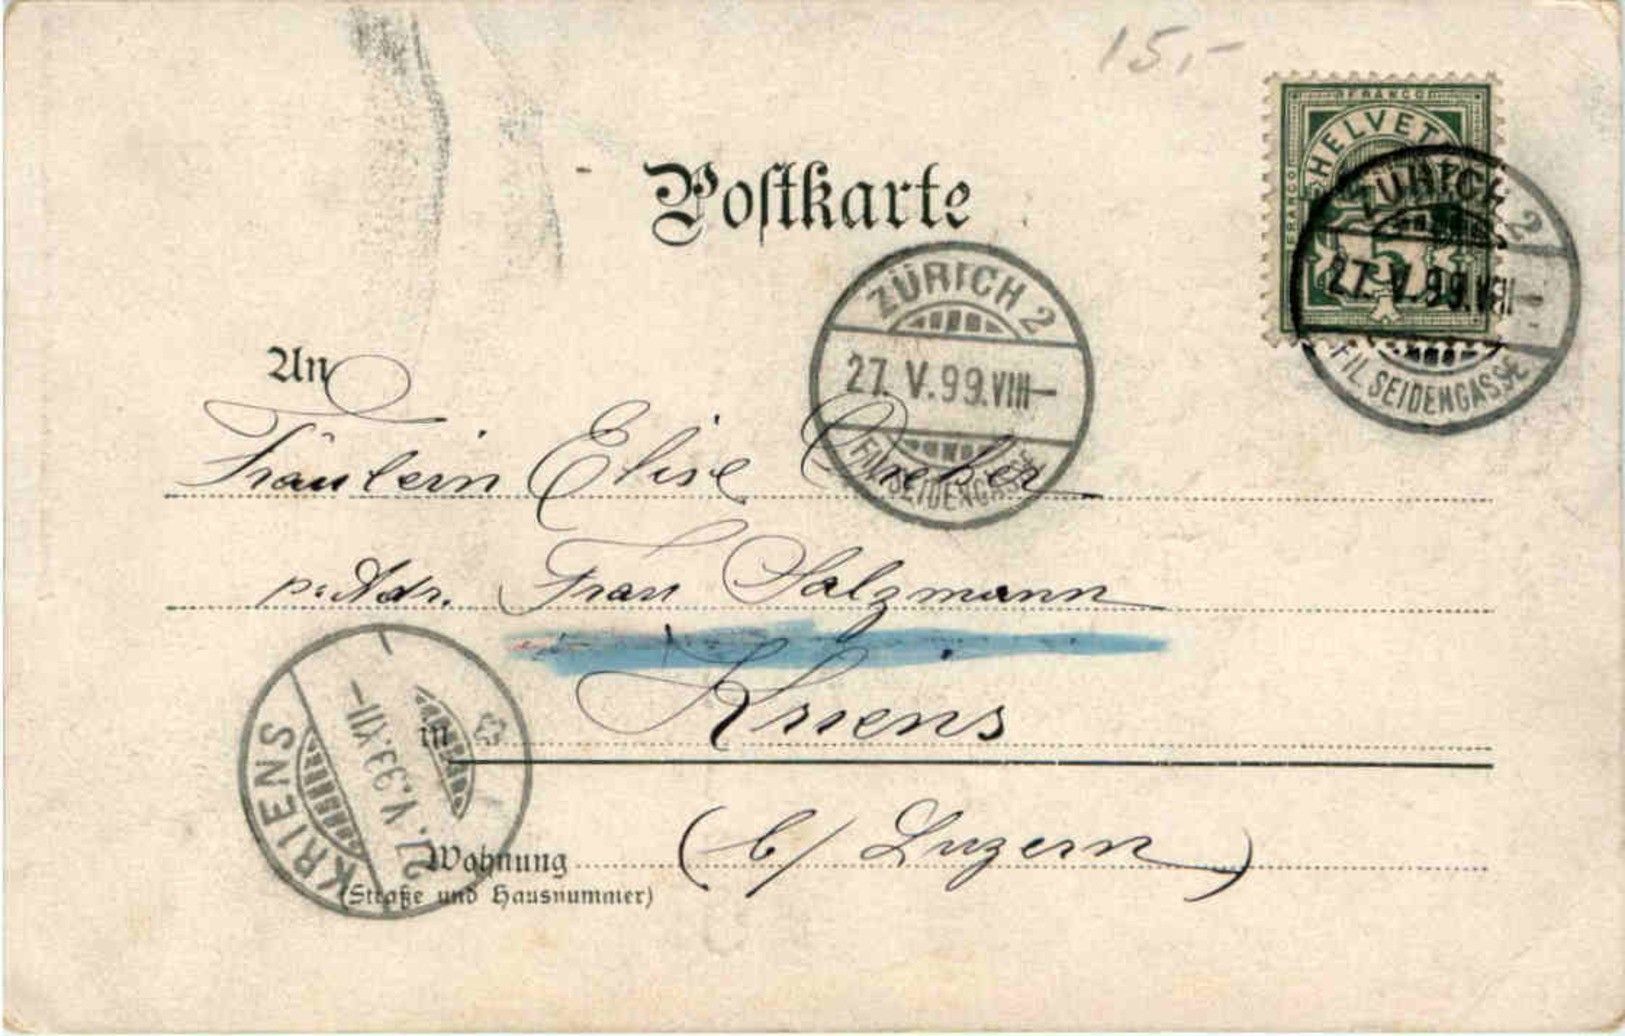 15,-
Postkarte
FRANCO
HELVET
FRANCO
5
ZÜRICH 2
27. V. 99. VIII-
FIL. SEIDENGASSE
ZÜRICH 2
27. V. 99. VIII-
FIL. SEIDENGASSE
An
Fräulein Elise
p. Adr. Frau Salzmann
in Kriens
KRIENS
27. V. 99. XII-
Wohnung (b/ Luzern)
(Straße und Hausnummer)